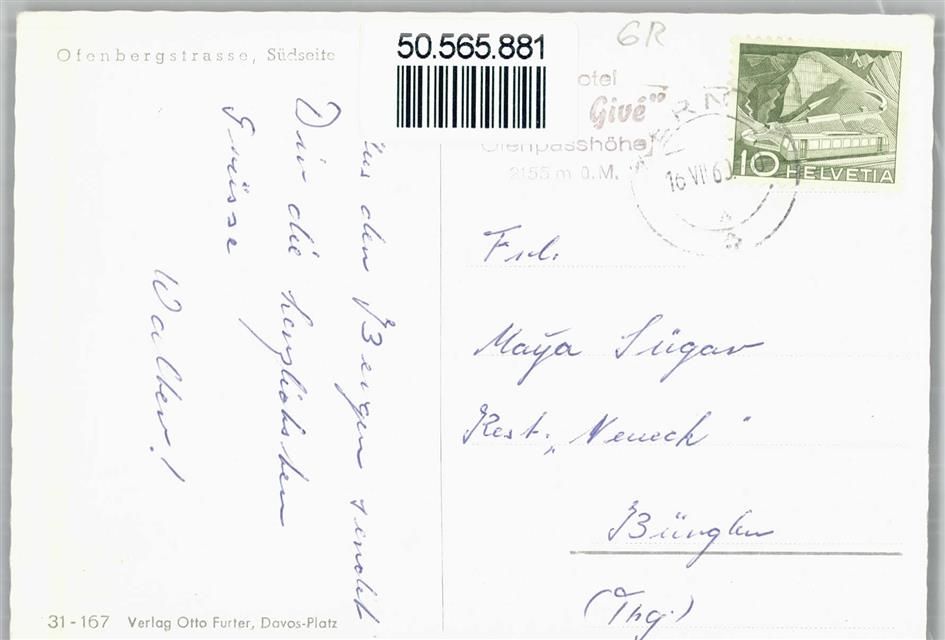 Ofenbergstrasse, Südseite
50.565.881
6R
otel
Givè"
Ofenpasshöhe
2155 m ü.M.
16 VII 60
10 HELVETIA
Aus den Bergen sendet
Dir die herzlichsten
Grüsse
Walter!
Frl.
Maya
Rest. „Neueck"
Bürglen
(Thg.)
31-167 Verlag Otto Furter, Davos-Platz